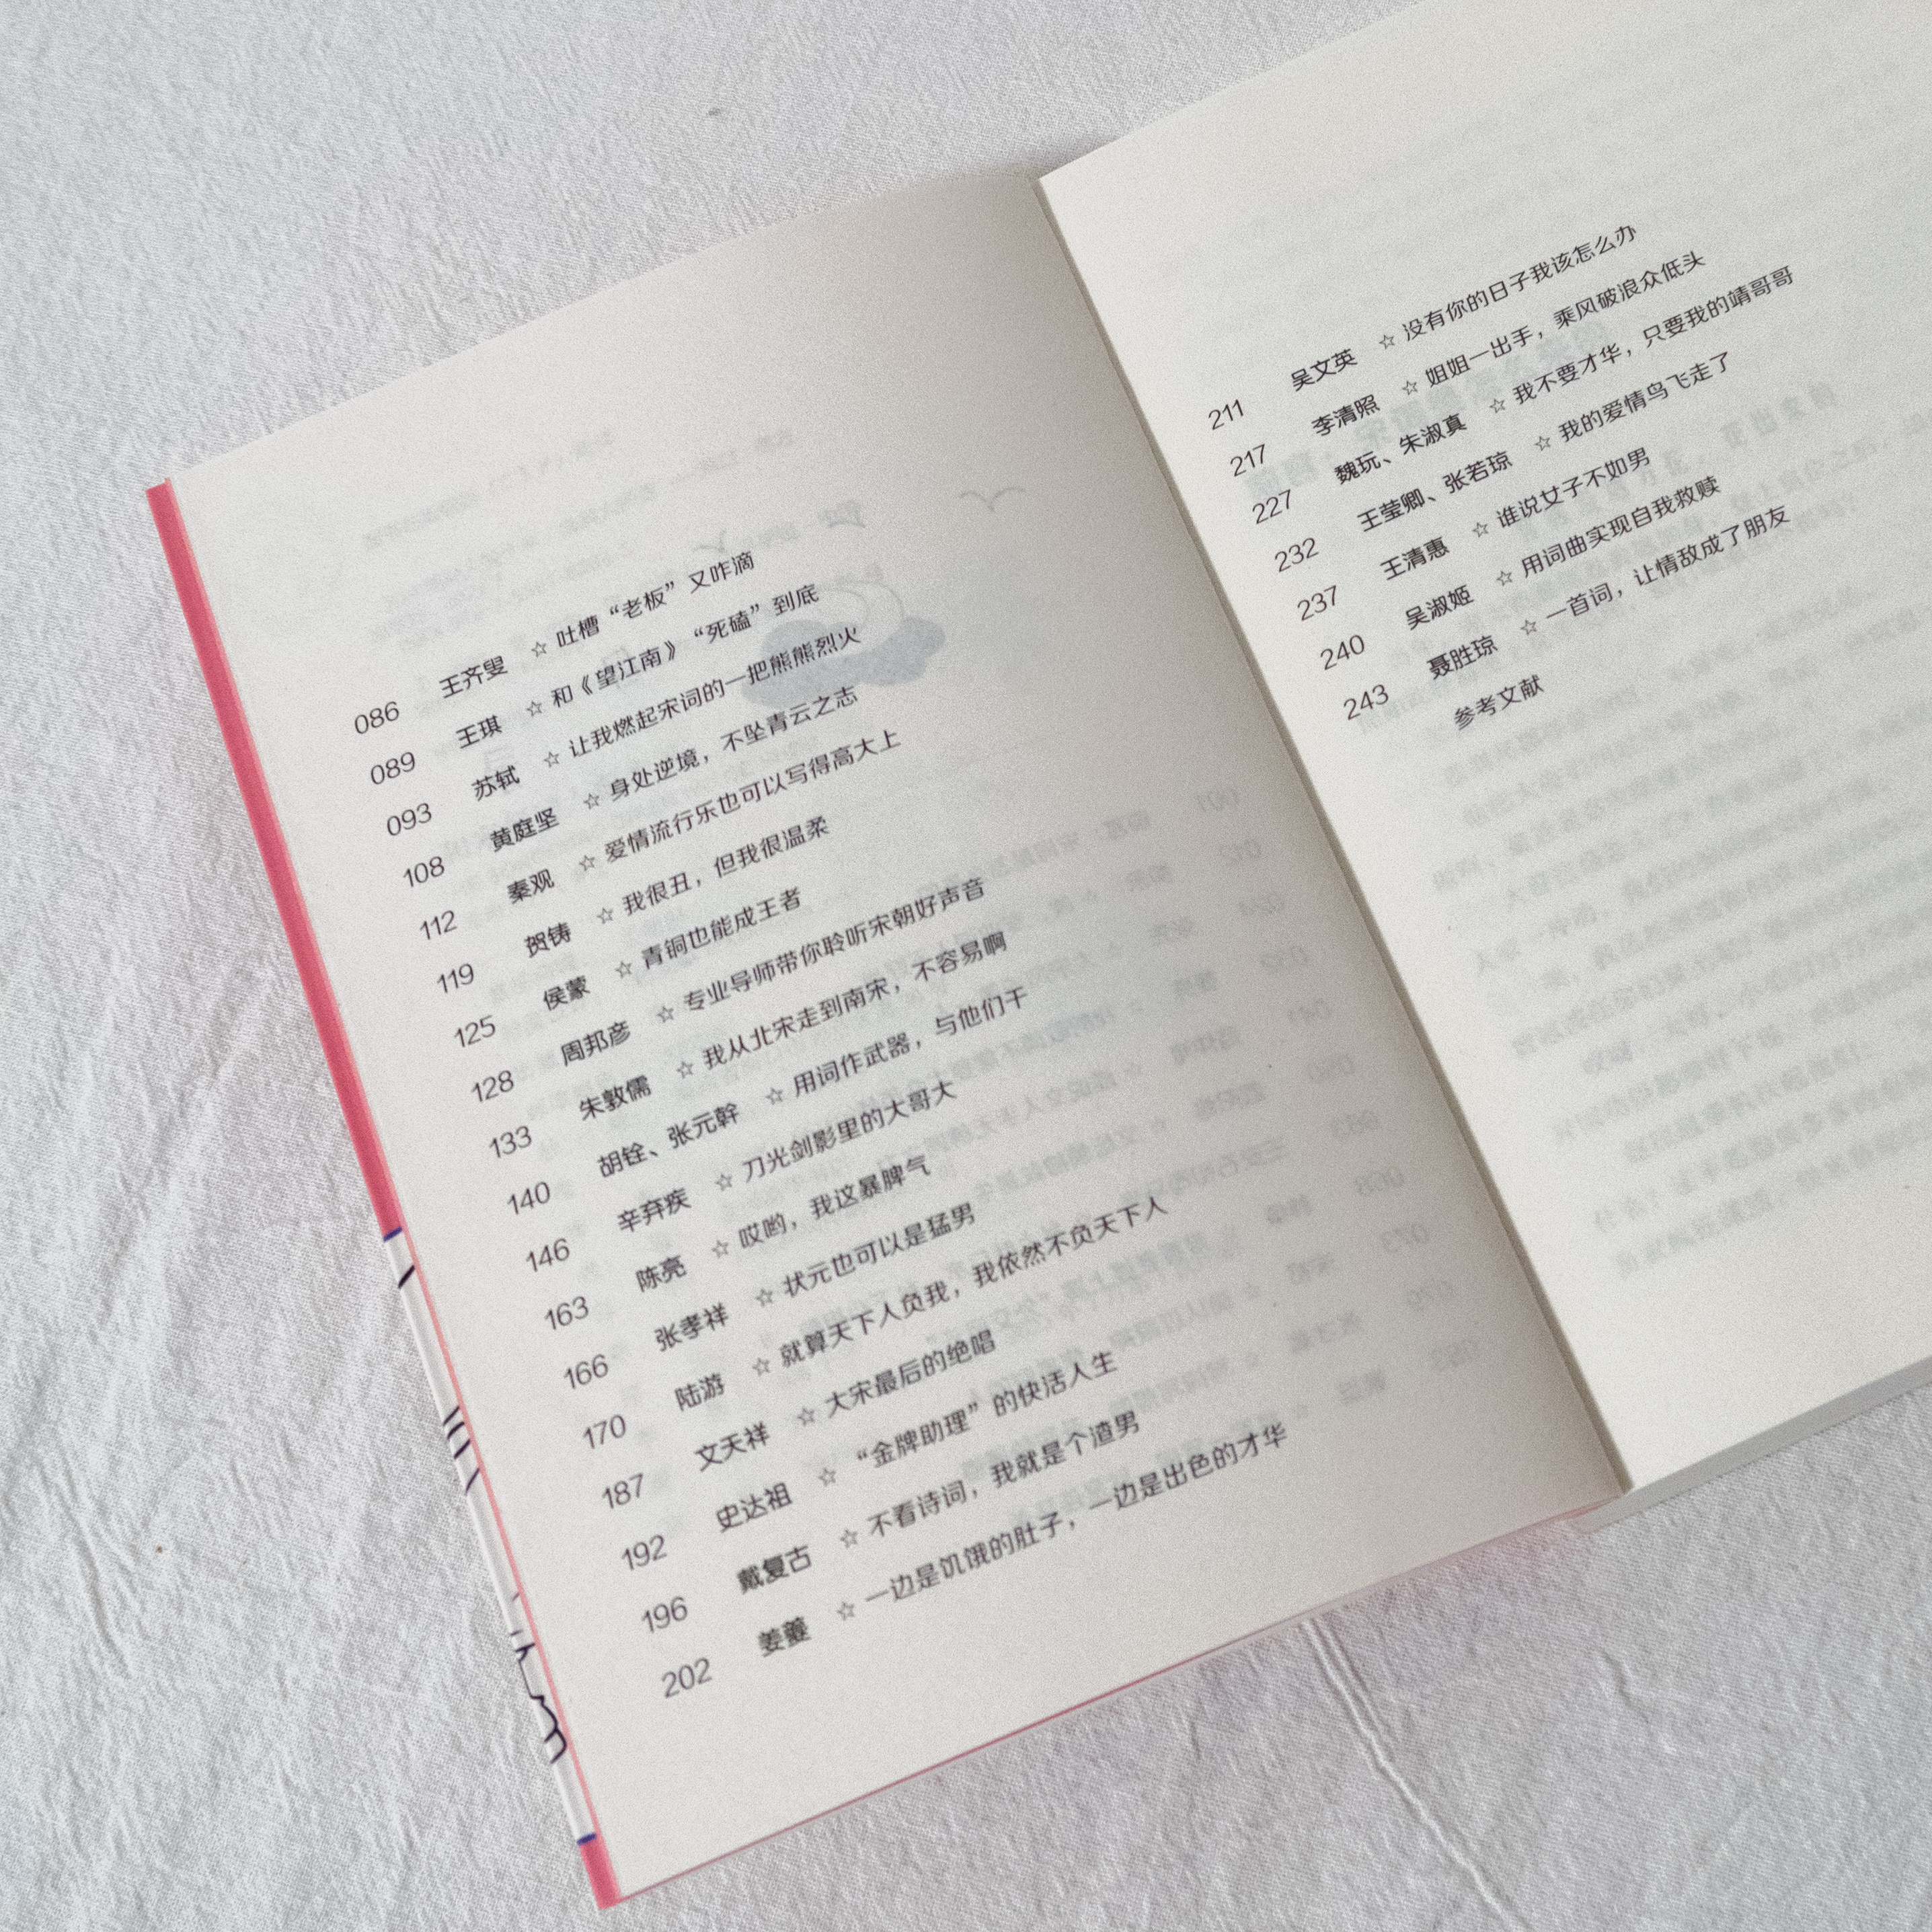 086 王齐叟 ☆ 吐槽“老板”又咋滴
089 王琪 ☆ 和《望江南》“死磕”到底
093 苏轼 ☆ 让我燃起宋词的一把熊熊烈火
108 黄庭坚 ☆ 身处逆境，不坠青云之志
112 秦观 ☆ 爱情流行乐也可以写得高大上
119 贺铸 ☆ 我很丑，但我很温柔
125 侯蒙 ☆ 青铜也能成王者
128 周邦彦 ☆ 专业导师带你聆听宋朝好声音
133 朱敦儒 ☆ 我从北宋走到南宋，不容易啊
140 胡铨、张元幹 ☆ 用词作武器，与他们干
146 辛弃疾 ☆ 刀光剑影里的大哥大
163 陈亮 ☆ 哎哟，我这暴脾气
166 张孝祥 ☆ 状元也可以是猛男
170 陆游 ☆ 就算天下人负我，我依然不负天下人
187 文天祥 ☆ 大宋最后的绝唱
192 史达祖 ☆ “金牌助理”的快活人生
196 戴复古 ☆ 不看诗词，我就是个渣男
202 姜夔 ☆ 一边是饥饿的肚子，一边是出色的才华
211 吴文英 ☆ 没有你的日子我该怎么办
217 李清照 ☆ 姐姐一出手，乘风破浪众低头
227 魏玩、朱淑真 ☆ 我不要才华，只要我的靖哥哥
232 王莹卿、张若琼 ☆ 我的爱情鸟飞走了
237 王清惠 ☆ 谁说女子不如男
240 吴淑姬 ☆ 用词曲实现自我救赎
243 聂胜琼 ☆ 一首词，让情敌成了朋友
参考文献